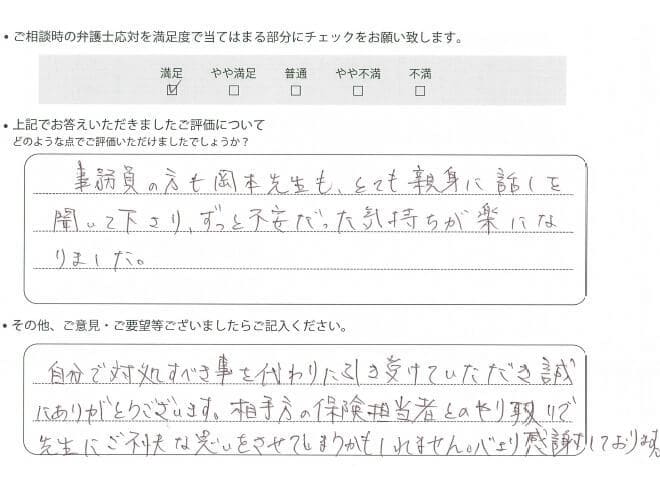 • ご相談時の弁護士応対を満足度で当てはまる部分にチェックをお願い致します。
満足 やや満足 普通 やや不満 不満
• 上記でお答えいただきましたご評価について
どのような点でご評価いただけましたでしょうか?
事務員の方も岡本先生も、とても親身に話しを
聞いて下さり、ずっと不安だった気持ちが楽にな
りました。
• その他、ご意見・ご要望等ございましたらご記入ください。
自分で対処すべき事を代わりに引き受けていただき誠
にありがとうございます。相手方の保険担当者とのやり取りで
先生にご不快な思いをさせてしまうかもしれません。感謝しております。